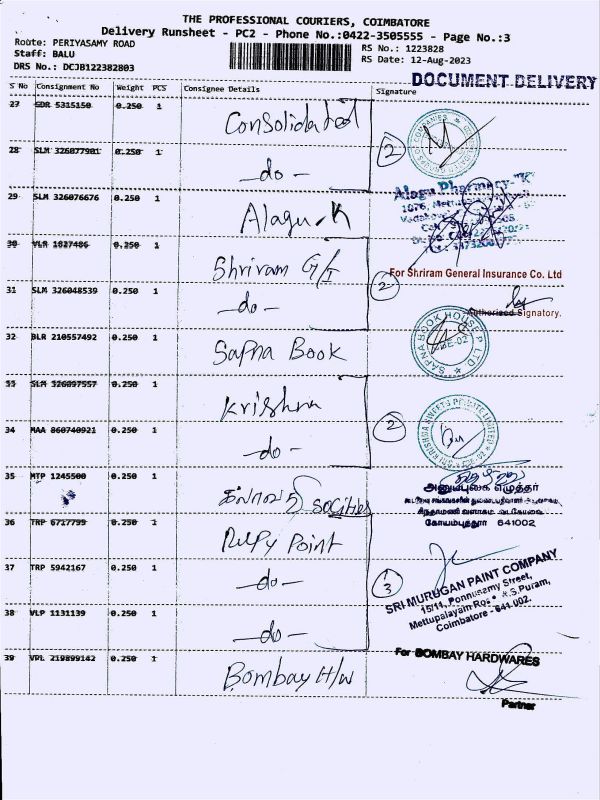 THE PROFESSIONAL COURIERS, COIMBATORE
Delivery Runsheet - PC2 - Phone No.:0422-3505555 - Page No.:3
Route: PERIYASAMY ROAD
Staff: BALU
DRS No.: DCJB122382803
RS No.: 1223828
RS Date: 12-Aug-2023
DOCUMENT DELIVERY
S No Consignment No Weight PCS Consignee Details Signature
27 GDR 5315150 0.250 1 Consolidated
2
28 SLM 326077901 0.250 1 -do-
29 SLM 326076676 0.250 1 Alagu-K
Alagu Pharmacy-"K"
30 VLR 1827486 0.250 1 Shriram G/I
2 For Shriram General Insurance Co. Ltd
31 SLM 326048539 0.250 1 -do-
Authorised Signatory.
32 BLR 210557492 0.250 1 Sapna Book
SAPNA BOOK HOUSE P LTD
CBE-02
33 SLM 326097557 0.250 1 Krishna
2 SRI KRISHNA SWEETS PRIVATE LIMITED
34 MAA 860740921 0.250 1 -do-
35 MTP 1245500 0.250 1
அனுப்புகை எழுத்தர்
சிந்தாமணி வளாகம்
கோயம்புத்தூர் 641002
36 TRP 6717795 0.250 1 Point
37 TRP 5942167 0.250 1 -do-
3
SRI MURUGAN PAINT COMPANY
15/11, Ponnusamy Street,
Mettupalayam Road, R.S.Puram,
Coimbatore - 641 002.
38 VLP 1131139 0.250 1 -do-
39 VPL 219899142 0.250 1 Bombay H/w
For BOMBAY HARDWARES
Partner